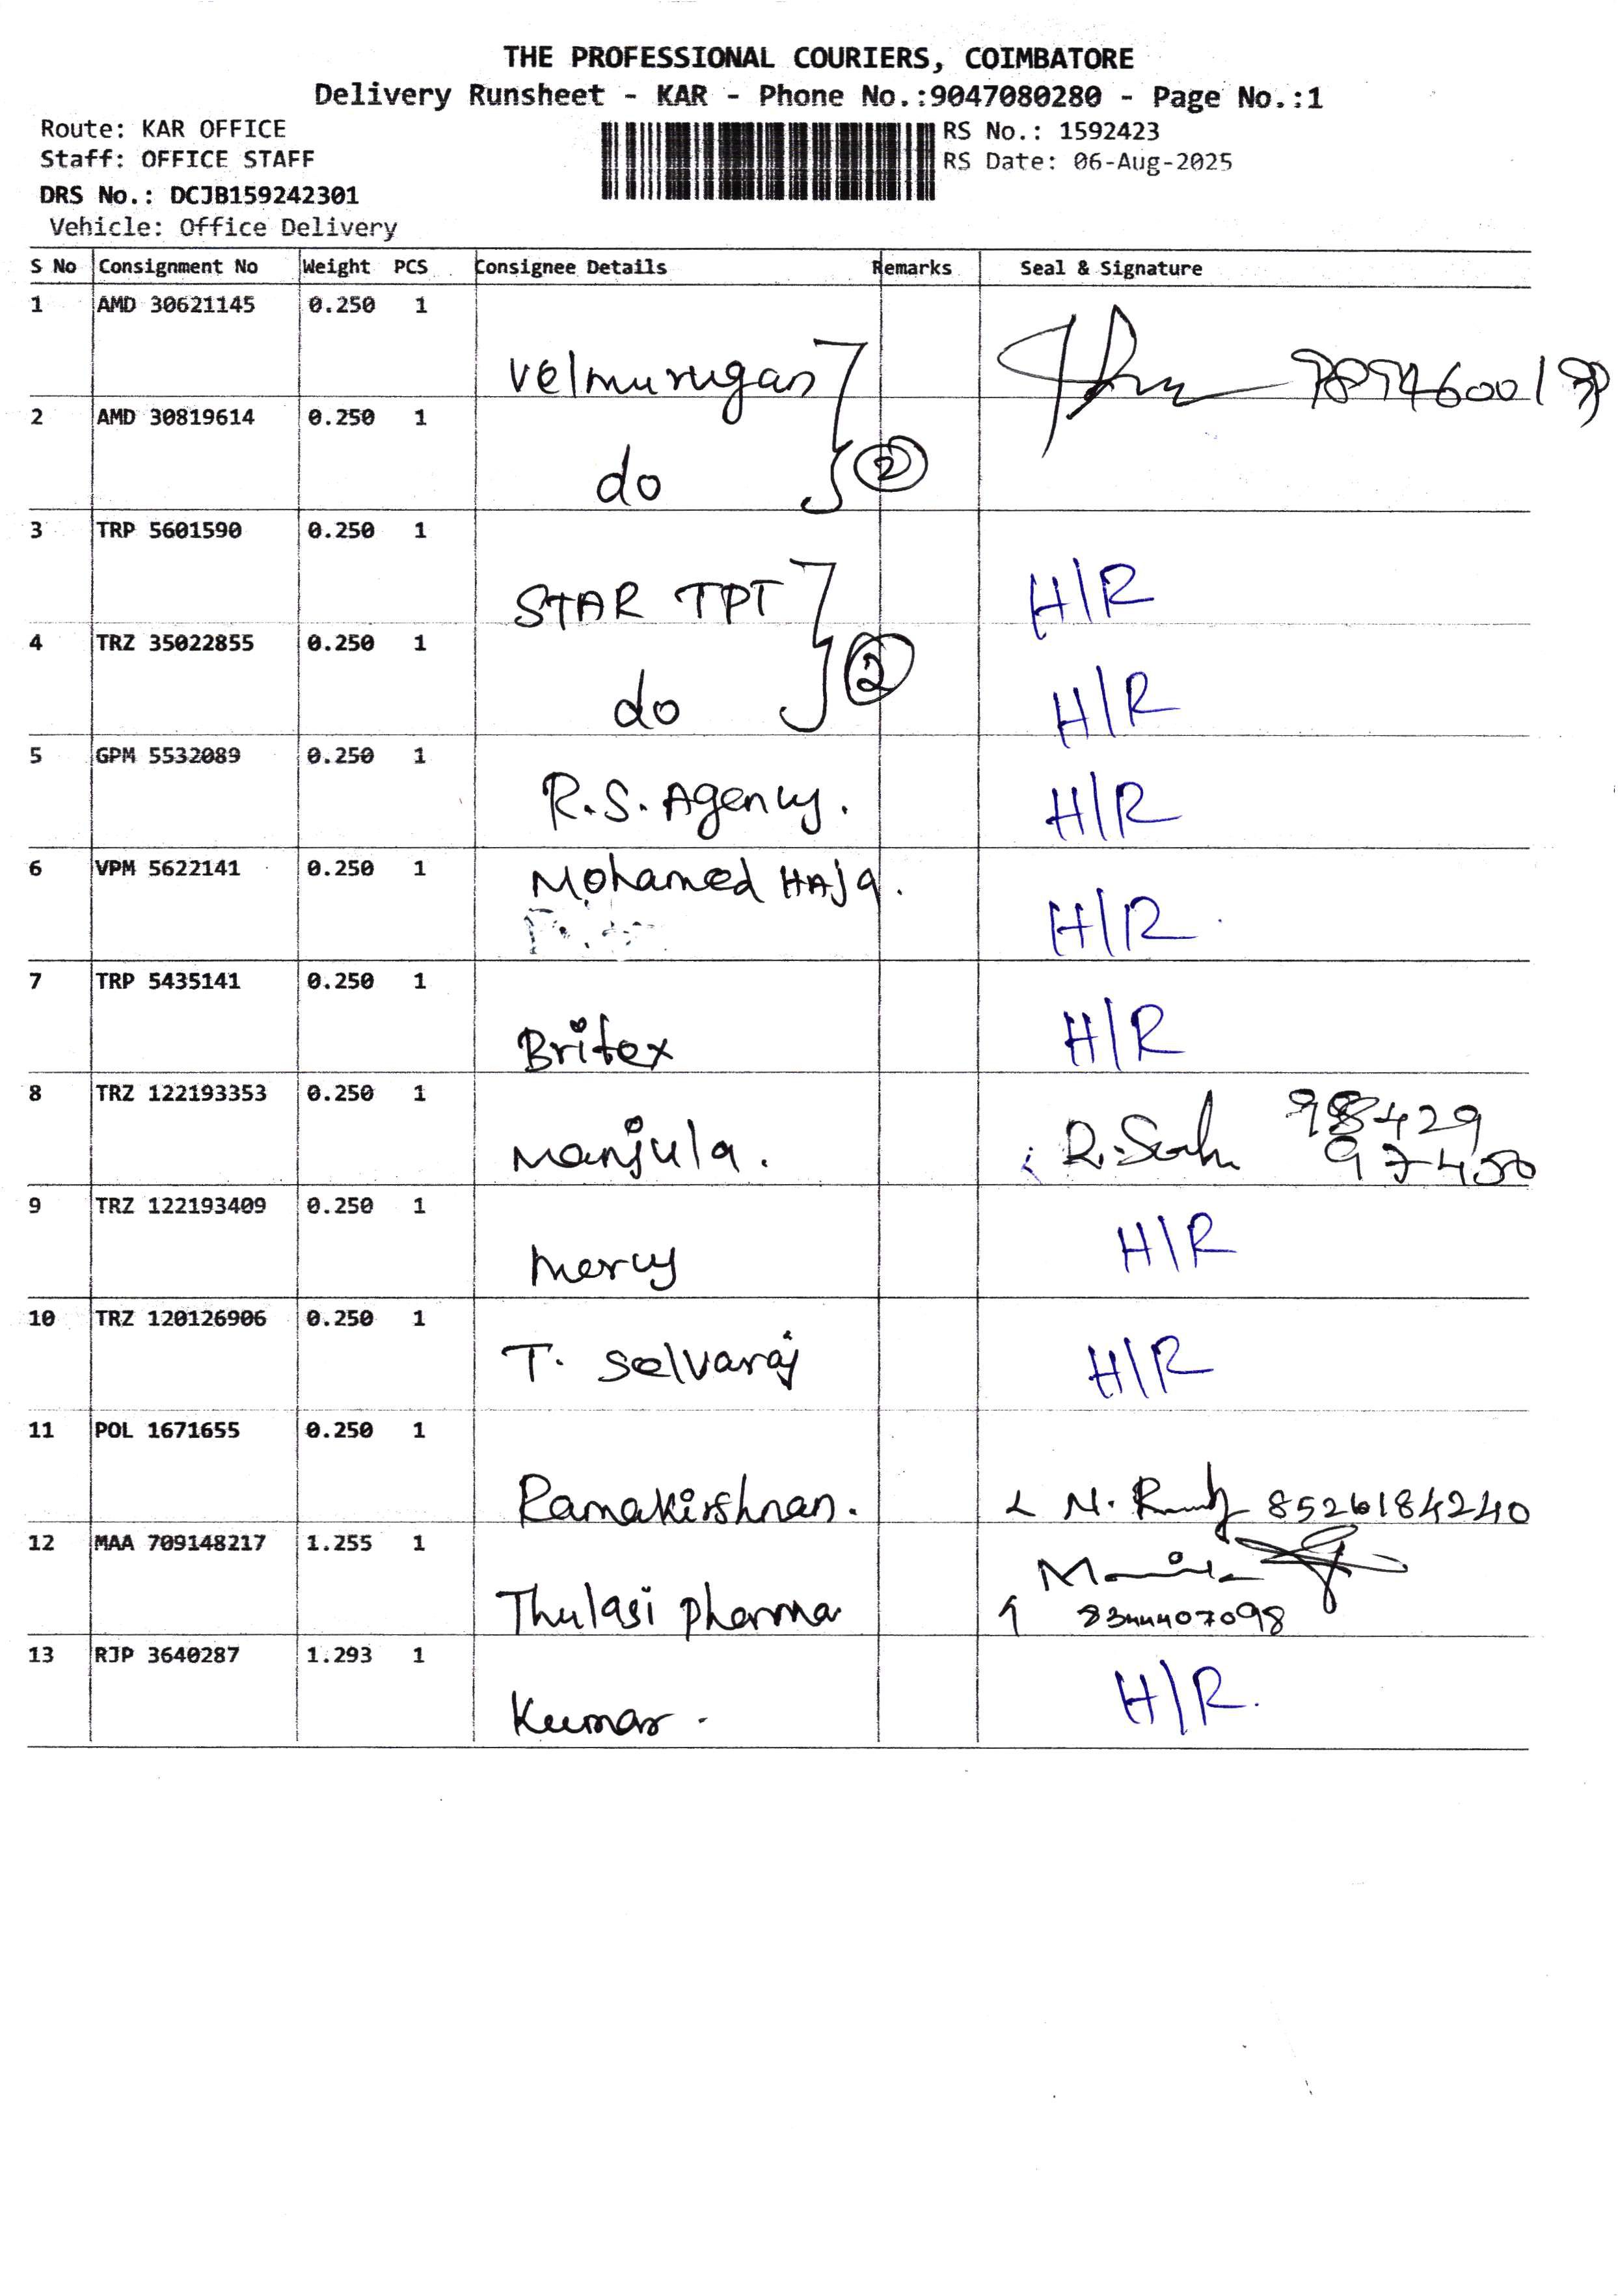 THE PROFESSIONAL COURIERS, COIMBATORE
Delivery Runsheet - KAR - Phone No.:9047080280 - Page No.:1
Route: KAR OFFICE
RS No.: 1592423
Staff: OFFICE STAFF
RS Date: 06-Aug-2025
DRS No.: DCJB159242301
Vehicle: Office Delivery
S No Consignment No Weight PCS Consignee Details Remarks Seal & Signature
1 AMD 30621145 0.250 1
Velmurugan
2 AMD 30819614 0.250 1
do 2
3 TRP 5601590 0.250 1
STAR TPT H/R
4 TRZ 35022855 0.250 1
do 2 H/R
5 GPM 5532089 0.250 1
R.S. Agency. H/R
6 VPM 5622141 0.250 1
Mohamed HAJa. H/R
7 TRP 5435141 0.250 1
Britex H/R
8 TRZ 122193353 0.250 1
Manjula. 98429
97450
9 TRZ 122193409 0.250 1
Mercy H/R
10 TRZ 120126906 0.250 1
T. Selvaraj H/R
11 POL 1671655 0.250 1
Ramakirshnan. 8526184240
12 MAA 709148217 1.255 1
Thulasi pharma 8344407098
13 RJP 3640287 1.293 1
Kumar. H/R.